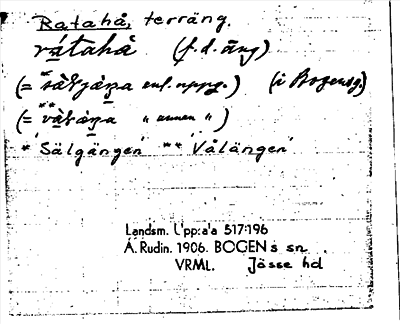 Ratahå, terräng.
rátahå (f. d. äng)
(= * enl. uppg.) (i Bogens g.)
(= ** " annan ")
* 'Sälgängen' ** 'Vålängen'
Landsm. Upp:a'a 517:196
A. Rudin. 1906. BOGENs sn.
VRML. Jösse hd